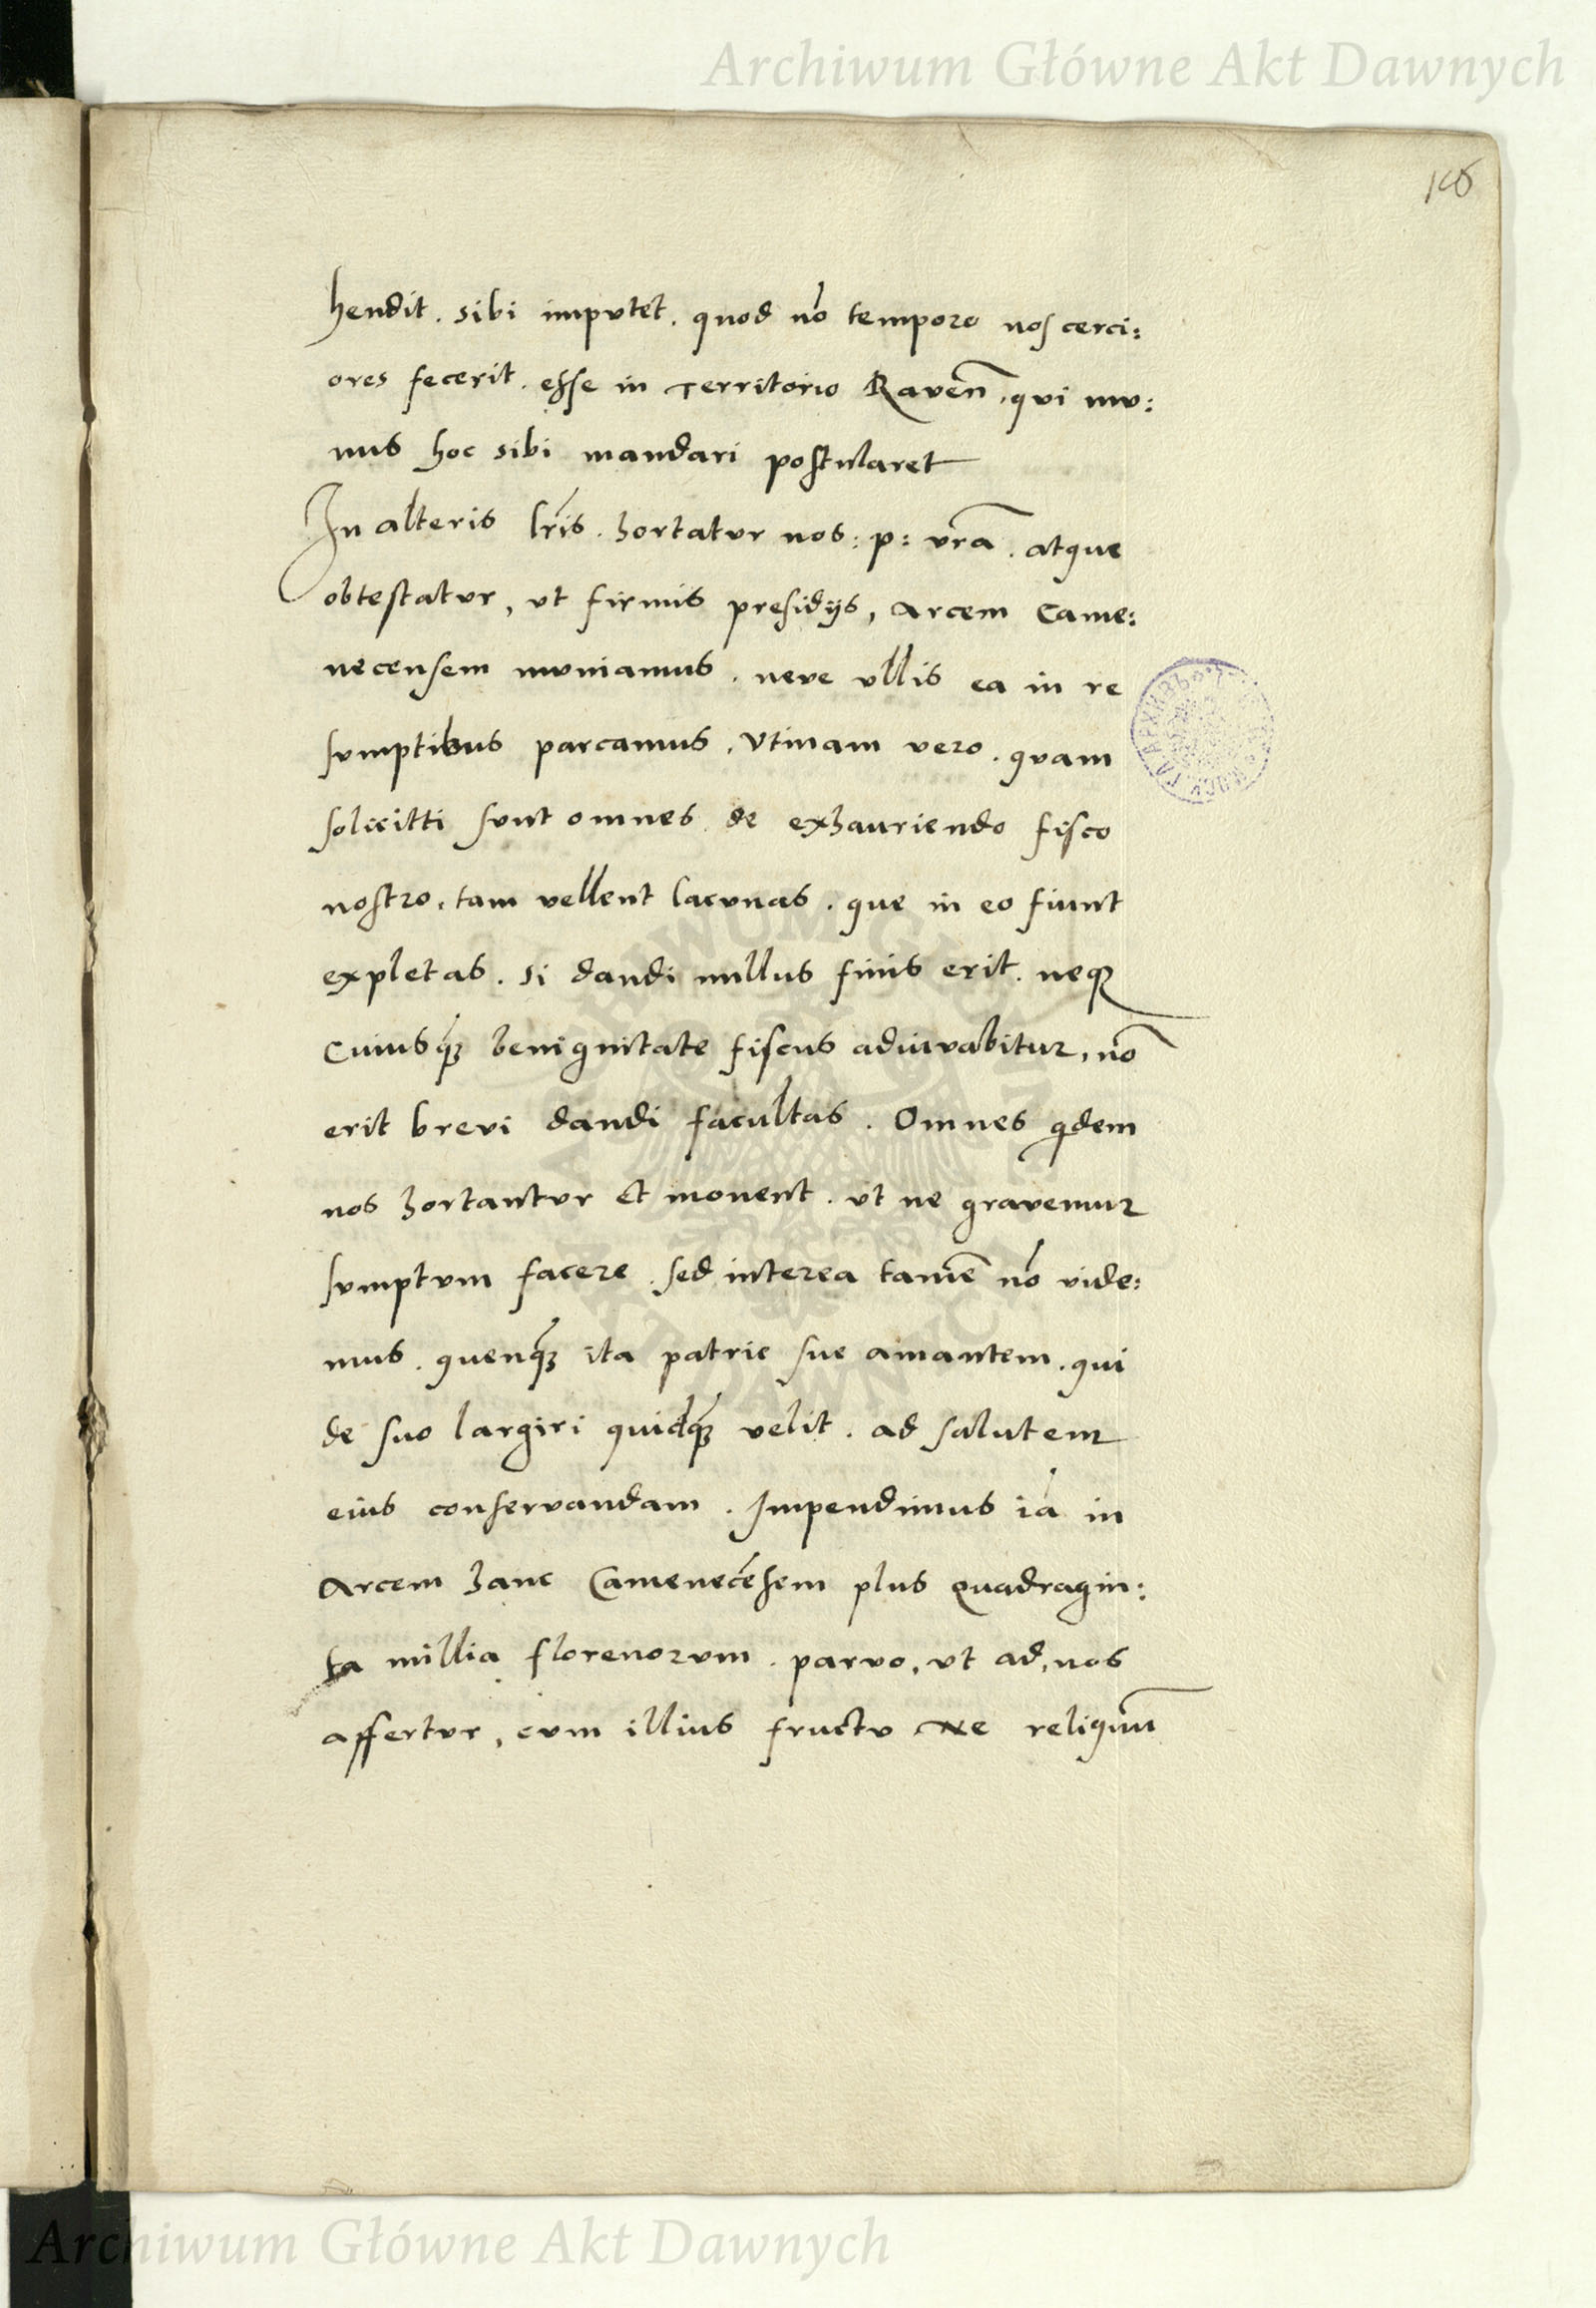 Archiwum Główne Akt Dawnych
hendit. sibi imputet. quod nõ tempore nos cerci:
ores fecerit. esse in Territorio Raveñ, qui mu:
nus hoc sibi mandari postularet
In alteris lris. hortatur nos: p: vra. atque
obtestatur, ut firmis presidijs, arcem Came:
necensem muniamus. neve ullis ea in re
sumptibus parcamus. Utinam vero. quam
solicitti sunt omnes de exhauriendo fisco
nostro, tam vellent lacunas. que in eo fiunt
expletas. si dandi nullus finis erit. neqꝫ
cuiusqꝫ benignitate fiscus adiuvabitur, nõ
erit brevi dandi facultas. Omnes qdem
nos hortantur et monent. ut ne gravemur
sumptum facere. sed interea tamẽ nõ vide:
mus. quenqꝫ ita patrie sue amantem. qui
de suo largiri quidqꝫ velit. ad salutem
eius conservandam. Impendimus iã in
Arcem hanc Camenecẽsem plus quadragin:
ta millia florenorum. parvo, ut ad, nos
affertur, cum illius fructu ne reliquũ
Archiwum Główne Akt Dawnych